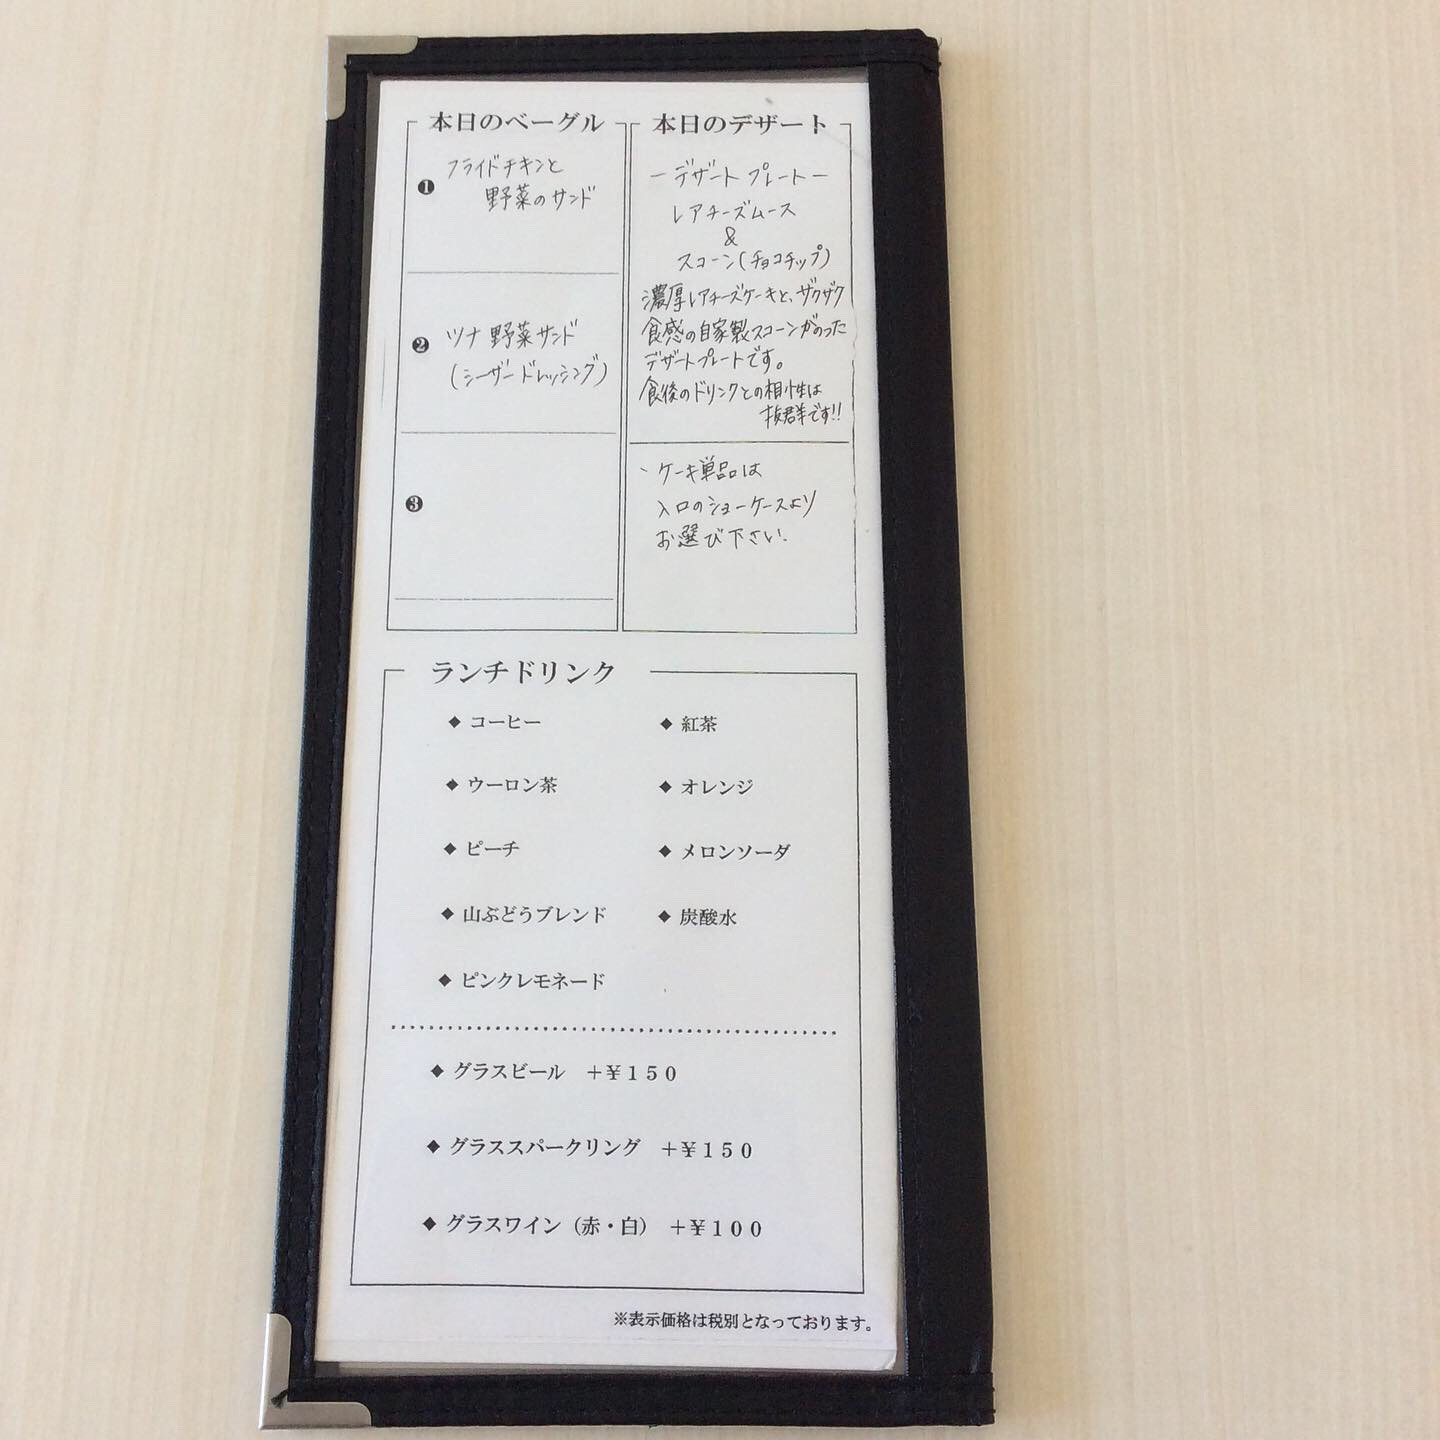 本日のベーグル
❶ フライドチキンと
野菜のサンド
❷ ツナ野菜サンド
(シーザードレッシング)
❸
本日のデザート
ーデザートプレートー
レアチーズムース
&
スコーン(チョコチップ)
濃厚レアチーズケーキと、ザクザク
食感の自家製スコーンがのった
デザートプレートです。
食後のドリンクとの相性は
抜群です!!
・ケーキ単品は
入口のショーケースより
お選び下さい.
ランチドリンク
◆ コーヒー ◆ 紅茶
◆ ウーロン茶 ◆ オレンジ
◆ ピーチ ◆ メロンソーダ
◆ 山ぶどうブレンド ◆ 炭酸水
◆ ピンクレモネード
◆ グラスビール +¥150
◆ グラススパークリング +¥150
◆ グラスワイン（赤・白） +¥100
※表示価格は税別となっております。